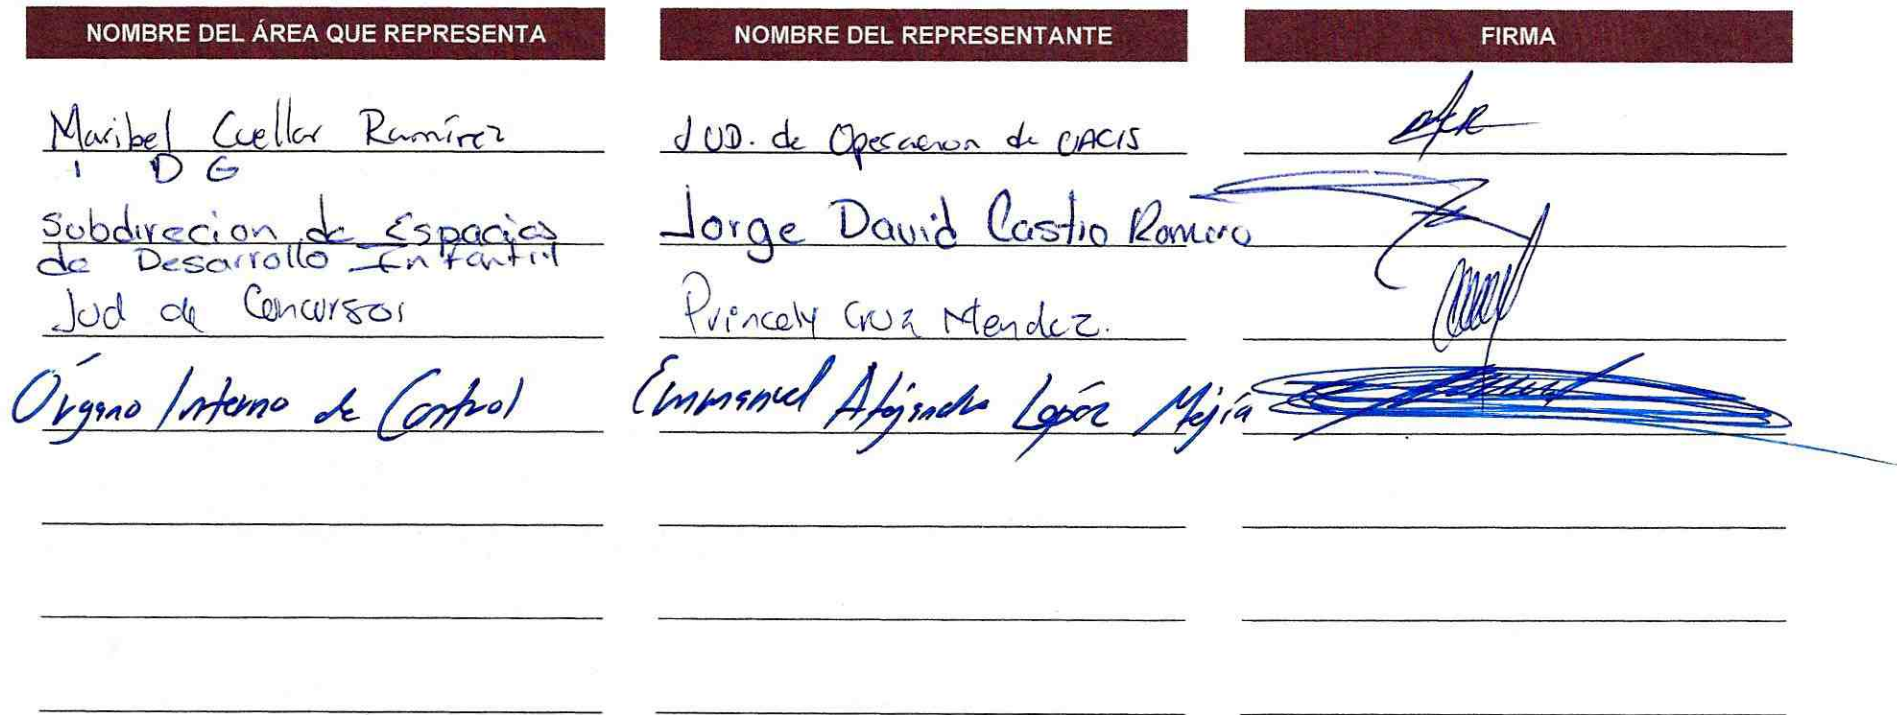 NOMBRE DEL ÁREA QUE REPRESENTA NOMBRE DEL REPRESENTANTE FIRMA
Maribel Cuellar Ramírez JUD. de Operacion de CACIS
I D G
Subdirecion de Espacios Jorge David Castro Romero
de Desarrollo Infantil
Jud de Concursos Princely Cruz Mendez.
Órgano Interno de Control Emmanuel Alejandro López Mejía